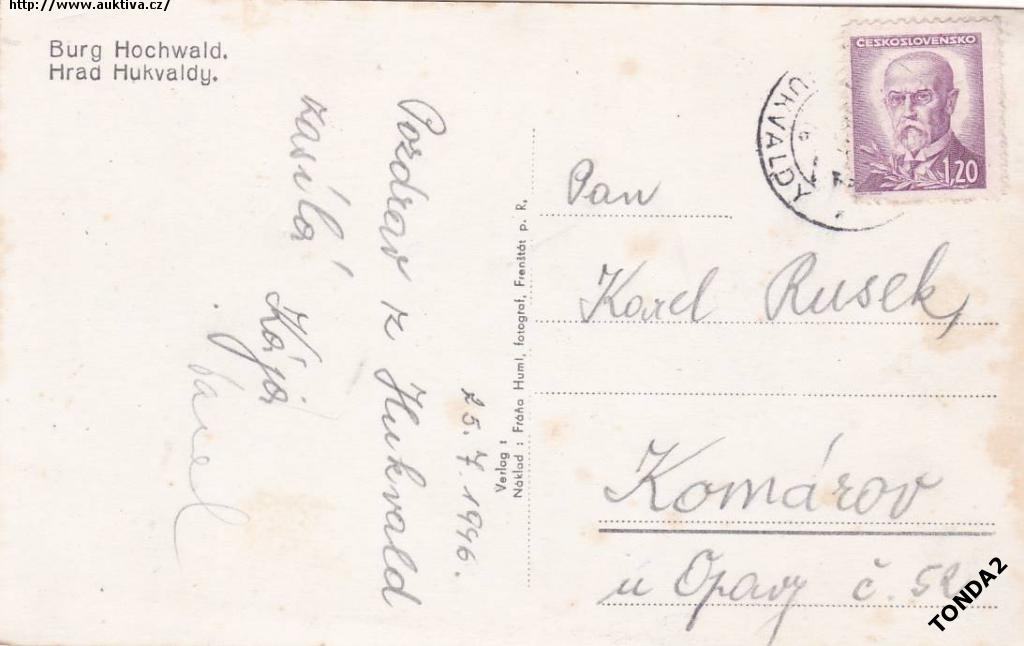 http://www.auktiva.cz/
Burg Hochwald.
Hrad Hukvaldy.
ČESKOSLOVENSKO
1,20
UKVALDY
Pozdrav z Hukvald
zasílá
Kája
Pavel
25.7.1946.
Verlag :
Náklad : Fráňa Huml, fotograf, Frenštát p. R.
Pan
Karel Rusek,
Komárov
u Opavy č. 52
TONDA2